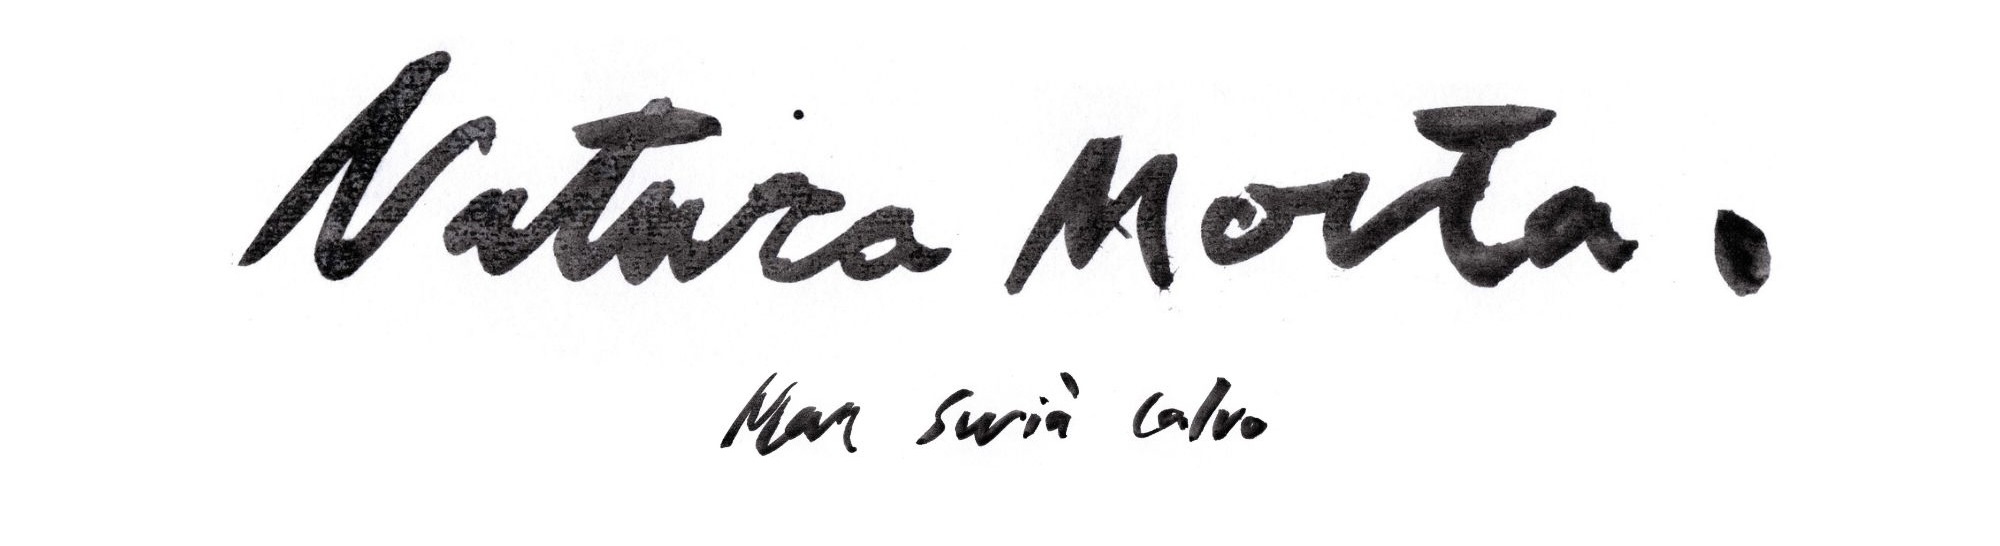 Natura Morta.
Mar Surià Calvo